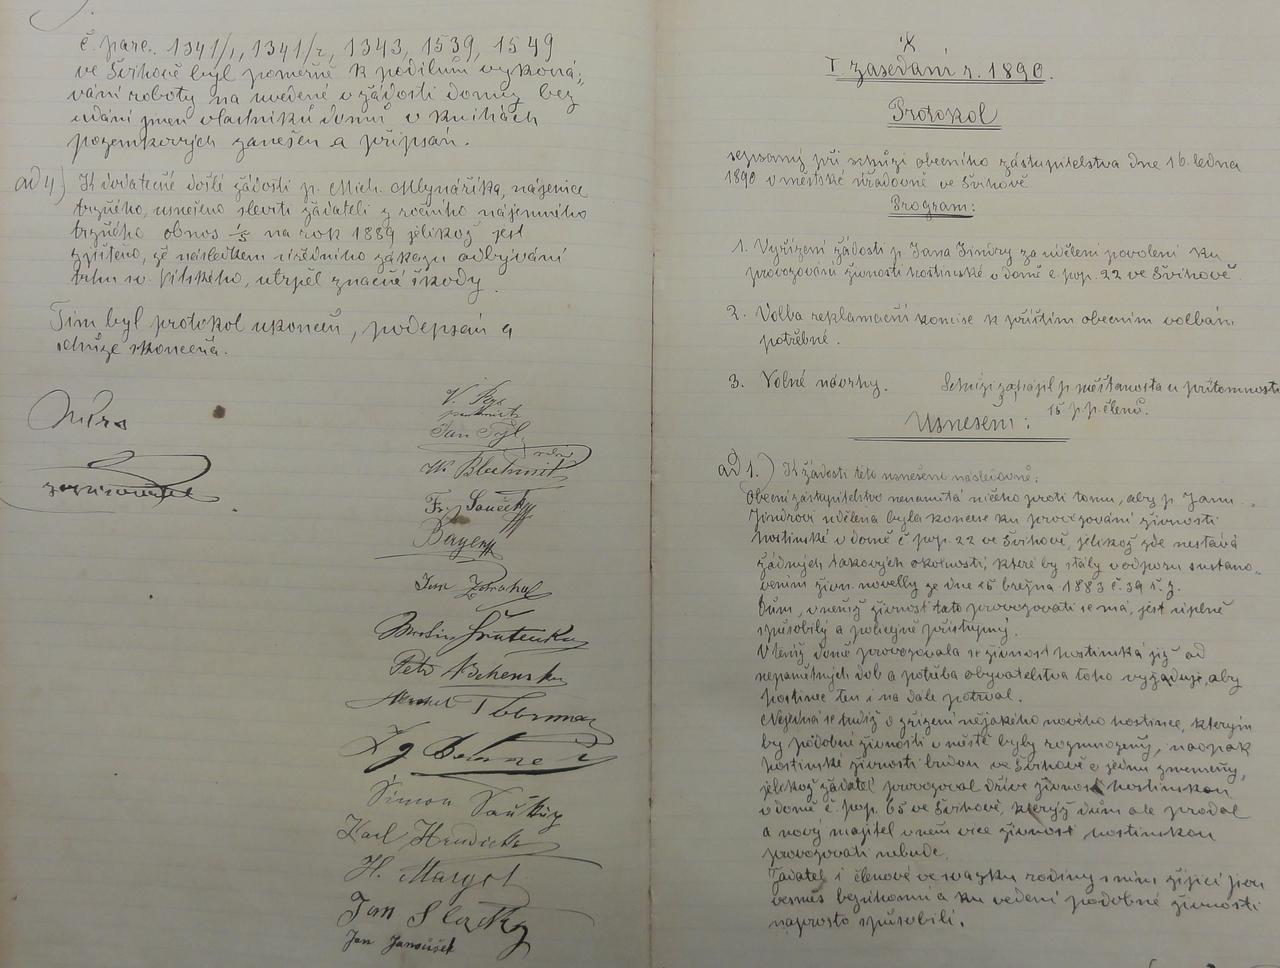 č. parc. 1341/1, 1341/2, 1343, 1539, 1549
ve Švihově byl poměrně k podílům vykoná-
vání roboty na uvedené v žádosti domy bez
udání jmen vlastníků domů v knihách
pozemkových zanešen a připsán.
ad 4) K dodatečně došlé žádosti p. Mich. Mlynaříka, nájemce
tržného, usnešeno sleviti žadateli z ročního nájemného
tržného obnos 1/5 na rok 1889 jelikož jest
zjištěno, že následkem úředního zákazu odbývání
trhu sv. Vítského, utrpěl značné škody.
Tím byl protokol ukončen, podepsán a
schůze skončena.
V.
Jan
Fr.
Bayer
Jan
Martin
Petr
Šimon
Karl
H. Margot
Jan
Jan Janoušek
I. zasedání r. 1890.
Protokol
sepsaný při schůzi obecního zástupitelstva dne 16. ledna
1890 v městské úřadovně ve Švihově
Program:
1. Vyřízení žádosti p. Jana Jindry za udělení povolení ku
provozování živnosti hostinské v domě č. pop. 22 ve Švihově.
2. Volba reklamační komise k příštím obecním volbám
potřebné.
3. Volné návrhy. Schůzi zahájil p. měšťanosta u přítomnosti
15 p. p. členů.
Usnešení:
ad 1.) K žádosti této usnešeno následovně:
Obecní zastupitelstvo nenamítá ničeho proti tomu, aby p. Janu
Jindrovi udělena byla koncese ku provozování živnosti
hostinské v domě č. pop. 22 ve Švihově, jelikož zde nestává
žádných takových okolností, které by stály v odporu s ustano-
vením živn. novelly ze dne 15 března 1883 č. 39 ř. z.
Dům, v němž živnost tato provozovati se má, jest úplně
způsobilý a policejně přístupný.
V témž domě provozovala se živnost hostinská již od
nepamětných dob a potřeba obyvatelstva toho vyžaduje, aby
hostinec ten i na dále potrval.
Nejedná se tudíž o zřízení nějakého nového hostince, kterým
by podobné živnosti v městě byly rozmnoženy, naopak
hostinské živnosti budou ve Švihově o jednu zmenšeny,
jelikož žadatel provozoval dříve živnost hostinskou
v domě č. pop. 65 ve Švihově, kterýž dům ale prodal
a nový majitel v něm více živnost hostinskou
provozovati nebude.
Žadatel i členové ve svazku rodiny s ním žijící jsou
vesměs bezúhonní a ku vedení podobné živnosti
naprosto způsobilí.